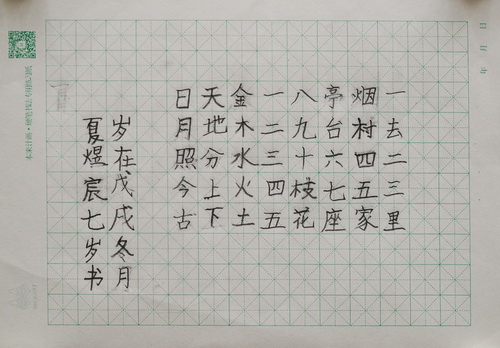 一去二三里
烟村四五家
亭台六七座
八九十枝花
一二三四五
金木水火土
天地分上下
日月照今古
岁在戊戌冬月
夏煜宸七岁书
年 月 日